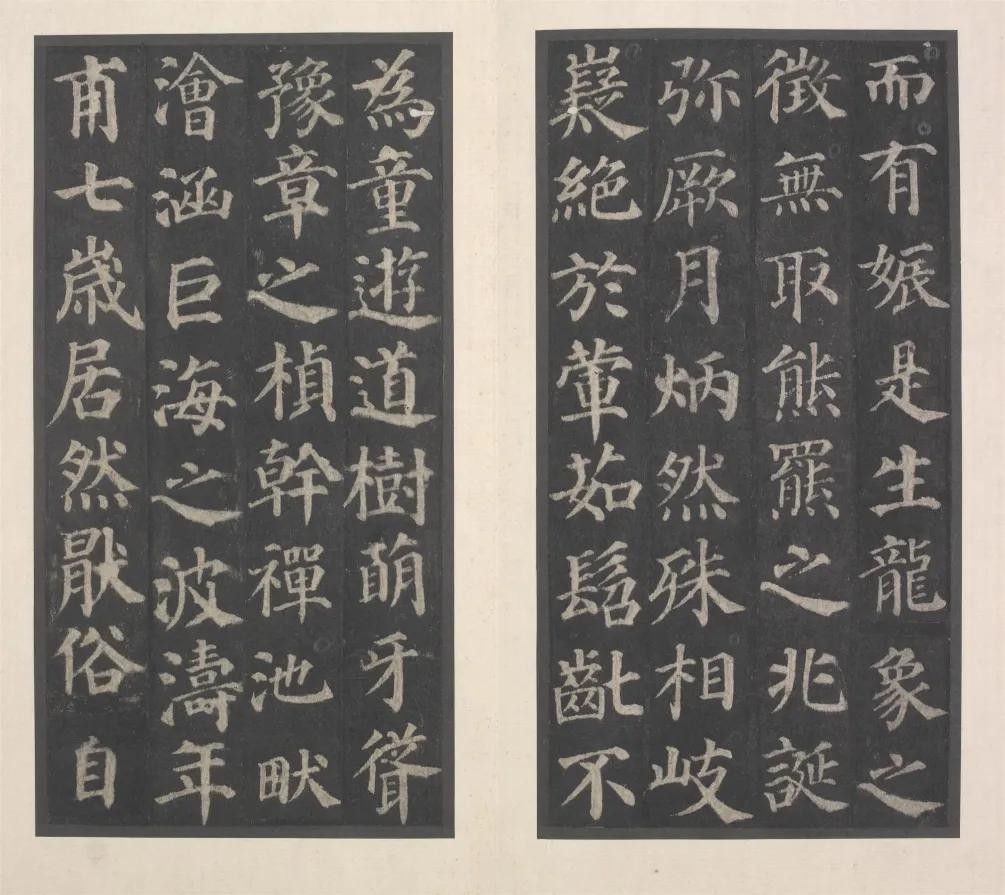 而有娠是生龍象之
徵無取熊羆之兆誕
弥厥月炳然殊相岐
嶷絶於葷茹髫齓不
為童遊道樹萌牙聳
豫章之楨幹禪池畎
澮涵巨海之波濤年
甫七歲居然猒俗自